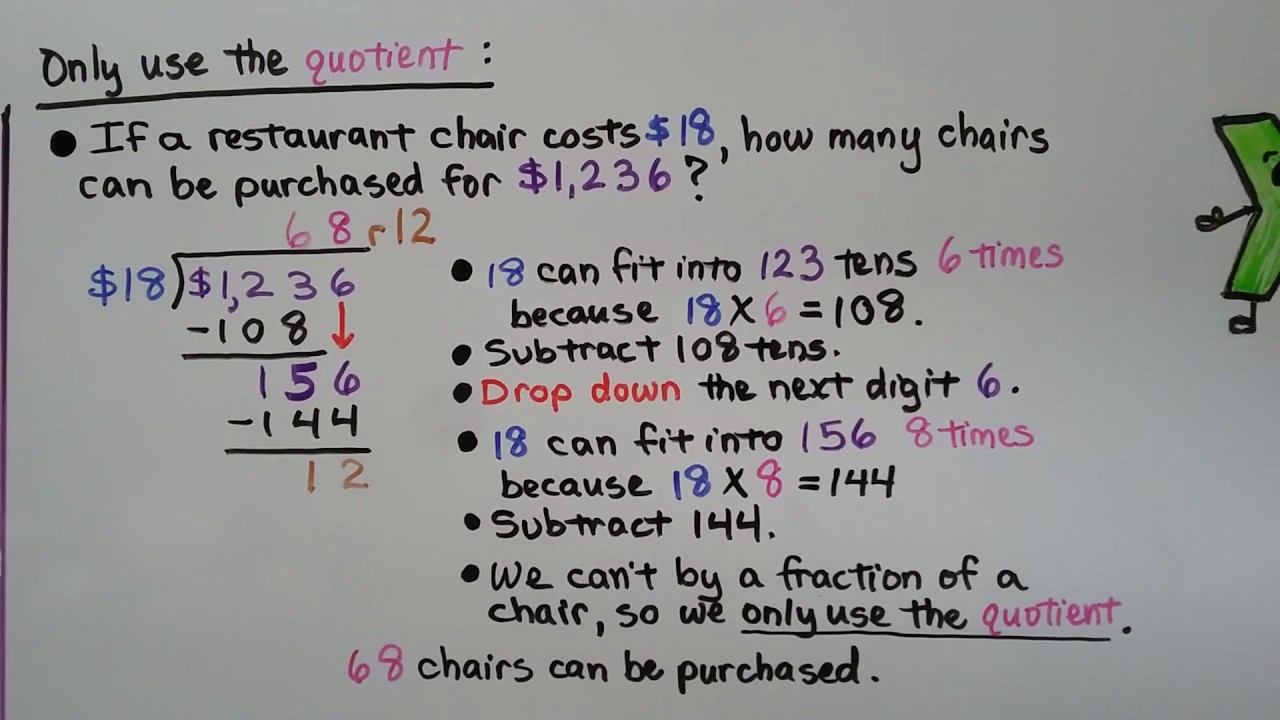 Only use the quotient:
• If a restaurant chair costs $18, how many chairs
can be purchased for $1,236?
68 r12
$18)$1,236
-108↓
156
-144
12
• 18 can fit into 123 tens 6 times
because 18 x 6 = 108.
• Subtract 108 tens.
• Drop down the next digit 6.
• 18 can fit into 156 8 times
because 18 x 8 = 144
• Subtract 144.
• We can't by a fraction of a
chair, so we only use the quotient.
68 chairs can be purchased.